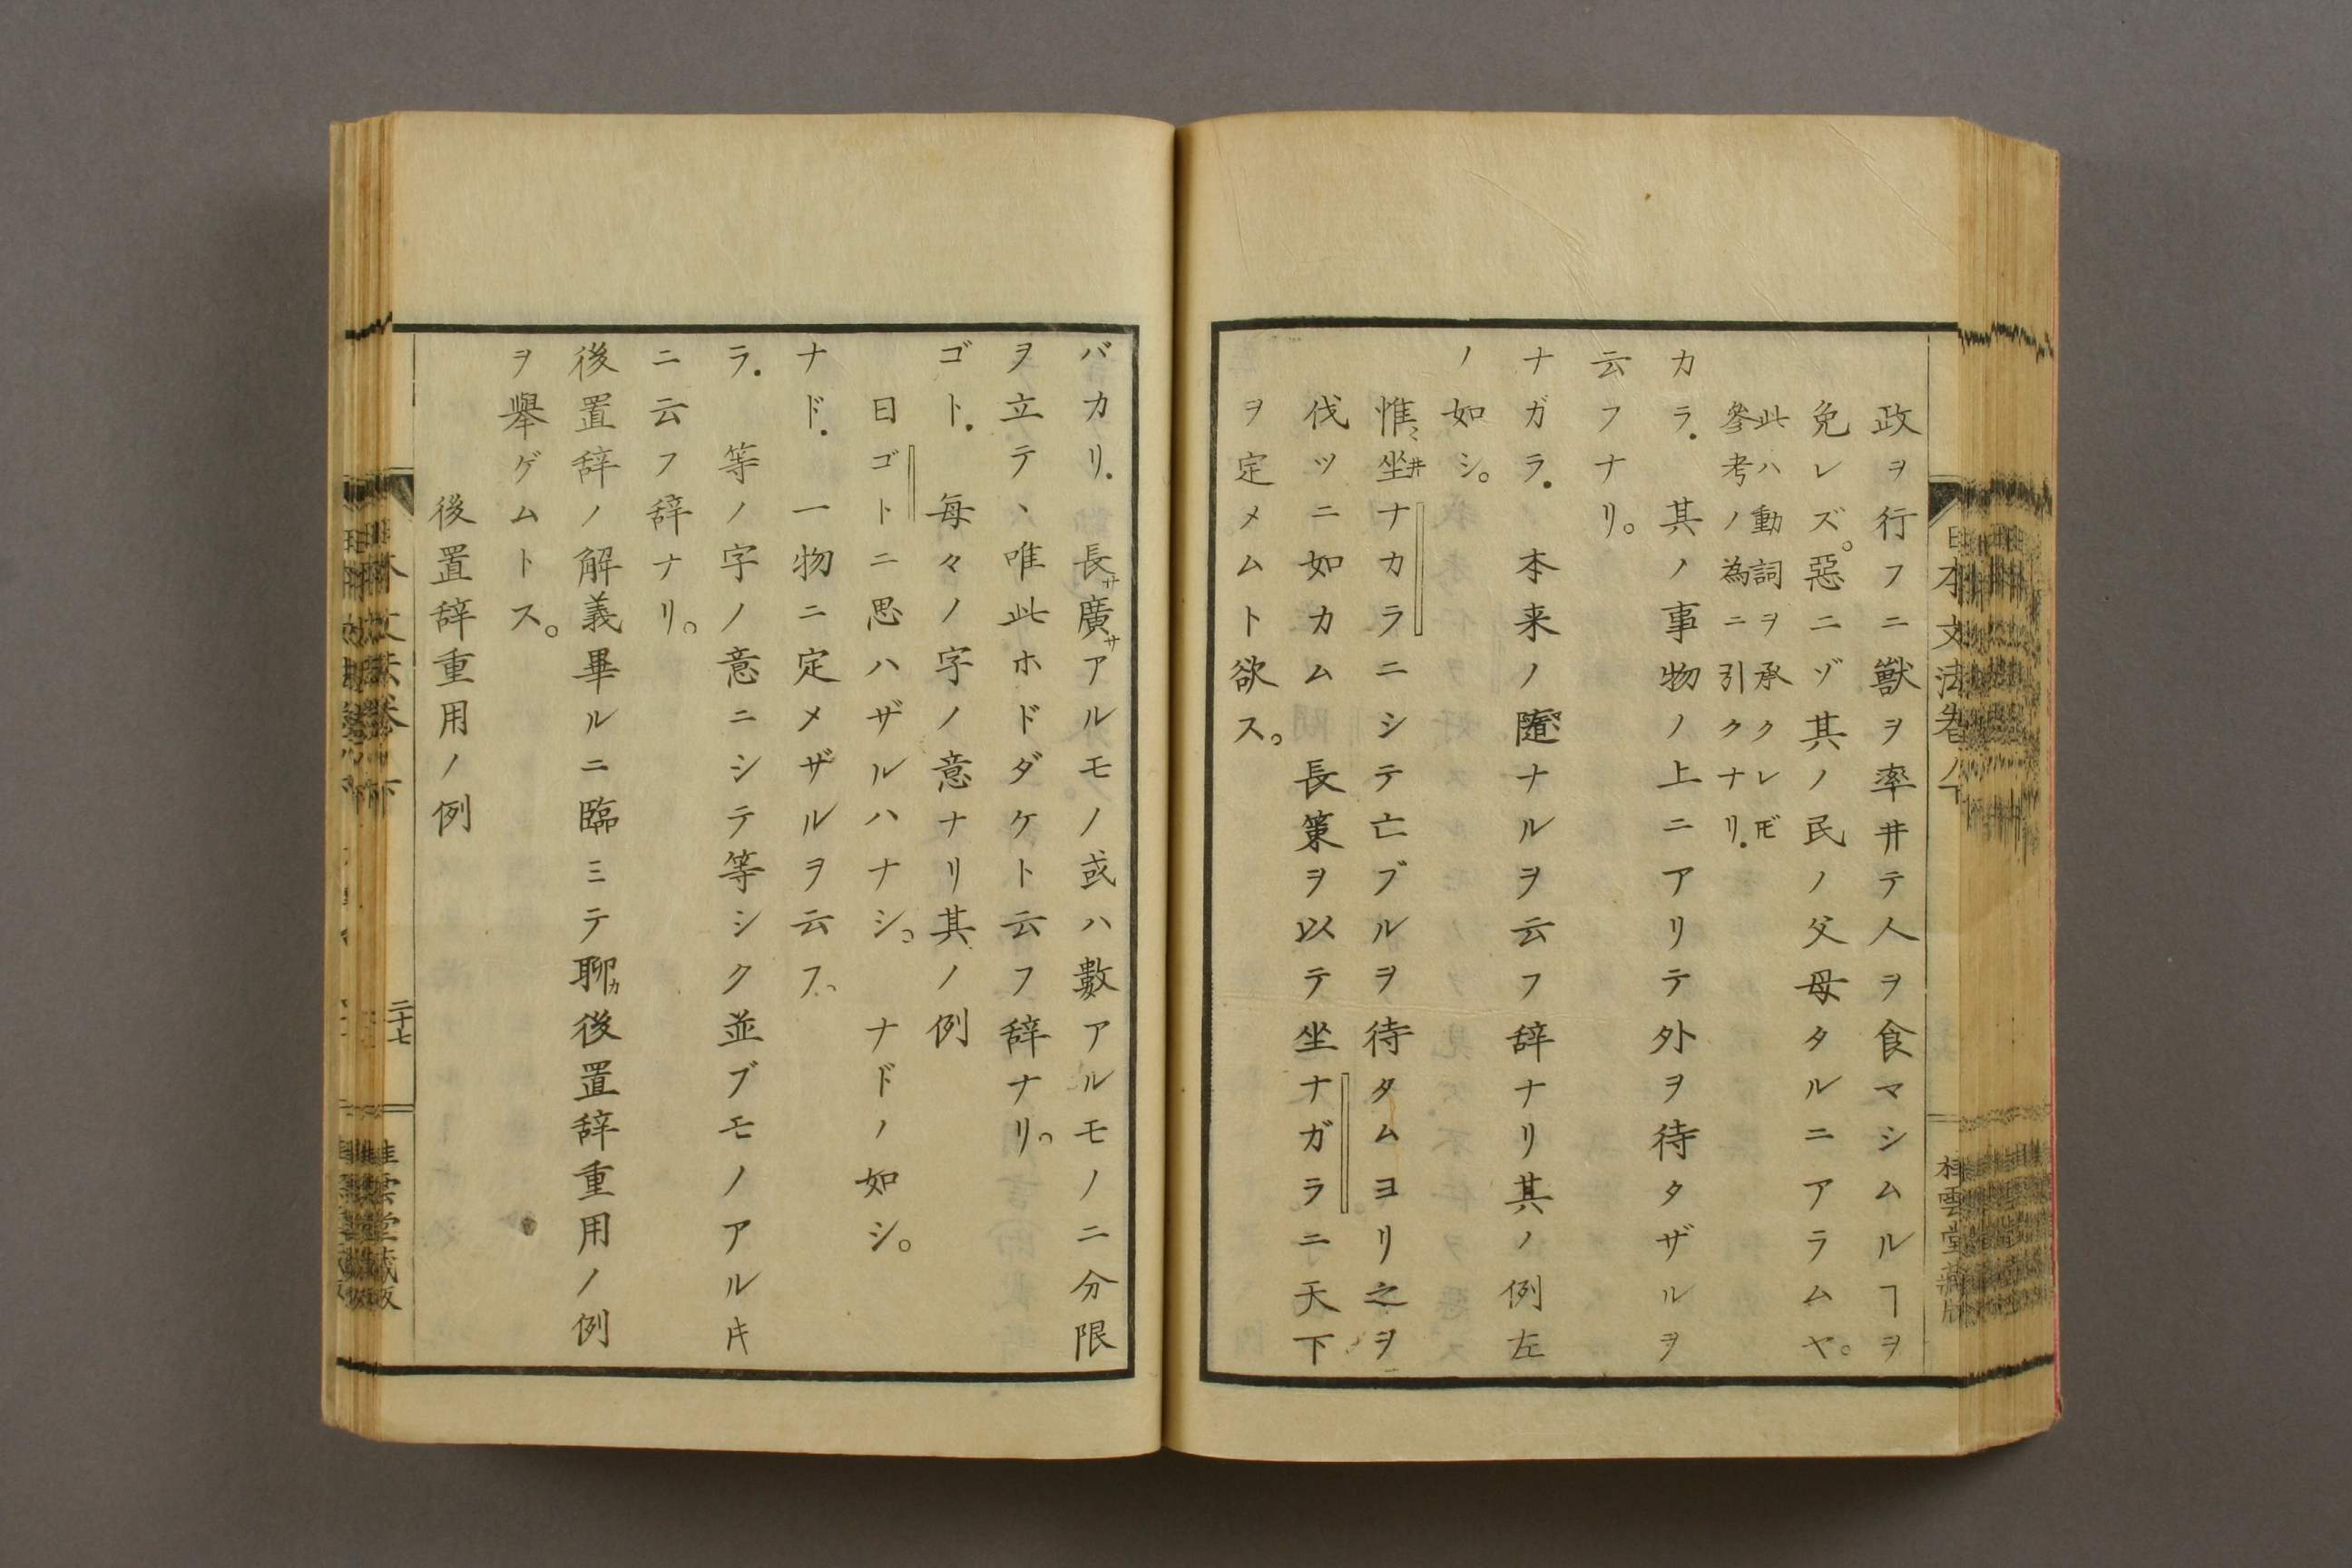 日本文法卷ノ下
政ヲ行フニ獣ヲ率井テ人ヲ食マシムルヿヲ
免レズ。惡ニヅ其ノ民ノ父母タルニアラムヤ。
此ハ動詞ヲ承クレ𪜈
參考ノ為ニ引クナリ.
カラ. 其ノ事物ノ上ニアリテ外ヲ待タザルヲ
云フナリ。
ナガラ. 本来ノ隨ナルヲ云フ辞ナリ其ノ例左
ノ如シ。
惟〻坐井ナカラニシテ亡ブルヲ待タムヨリ之ヲ
伐ツニ如カム 長策ヲ以テ坐ナガラニ天下
ヲ定メムト欲ス。
バカリ. 長サ廣サアルモノ或ハ數アルモノニ分限
ヲ立テヽ唯此ホドダケト云フ辞ナリ。
ゴト. 毎々ノ字ノ意ナリ其ノ例
日ゴトニ思ハザルハナシ。 ナドノ如シ。
ナド. 一物ニ定メザルヲ云フ、
ラ. 等ノ字ノ意ニシテ等シク並ブモノノアルキ
ニ云フ辞ナリ。
後置辞ノ解義畢ルニ臨ミテ聊カ後置辞重用ノ例
ヲ擧ゲムトス。
後置辞重用ノ例
二十七